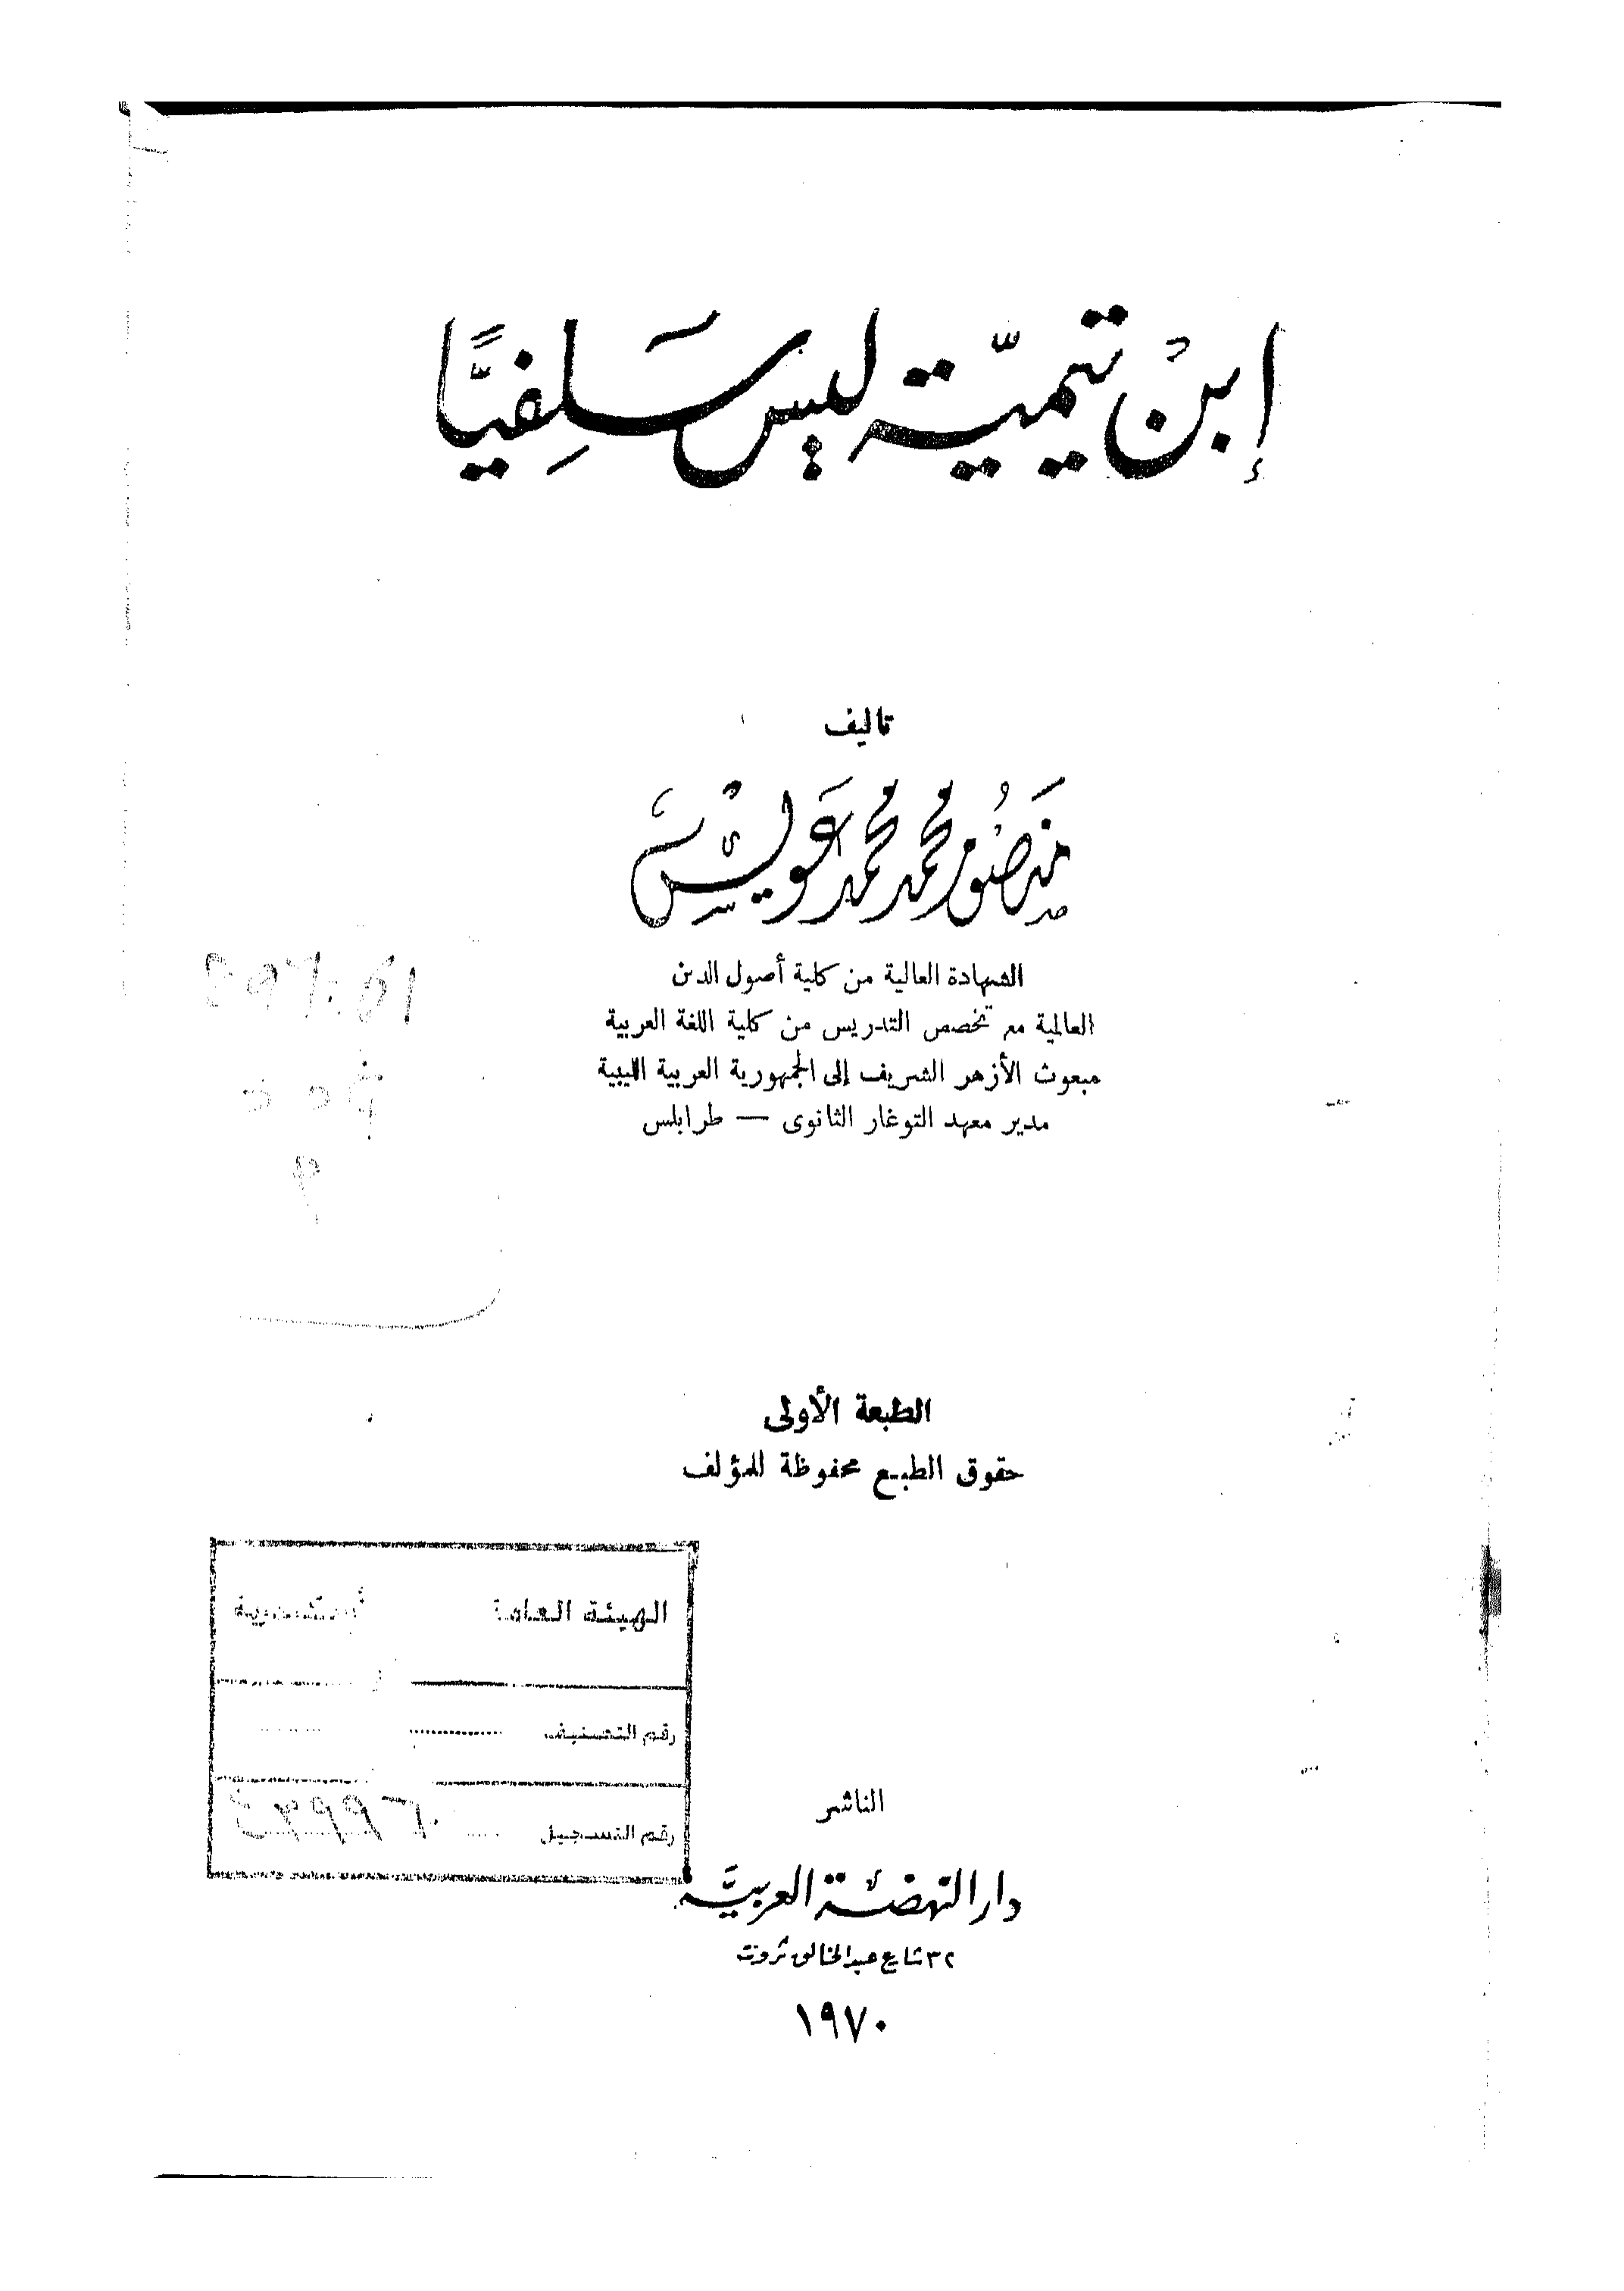 إبن تيميّة ليس سَلِفيًّا
تاليف
مَنصُور محمد محمد عَويس
الشهادة العالية من كلية أصول الدين
العالمية مع تخصص التدريس من كلية اللغة العربية
مبعوث الأزهر الشريف إلى الجمهورية العربية الليبية
مدير معهد التوغار الثانوى — طرابلس
الطبعة الأولى
حقوق الطبع محفوظة للمؤلف
الهيئة العامة
رقم التصنيف
رقم التسجيل
الناشر
دار النهضة العربيَّة
٣٢ شارع عبد الخالق ثروت
١٩٧٠